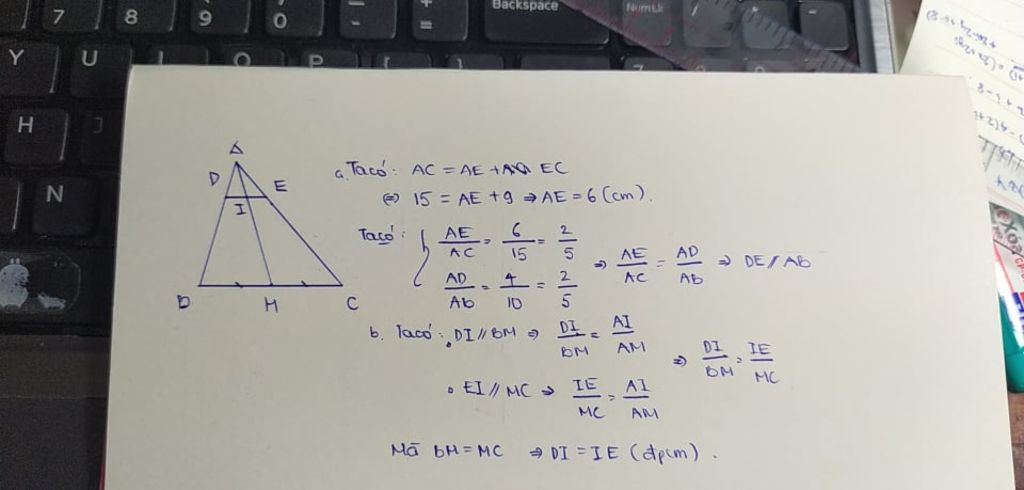 7 8 9 0 - + = Backspace NumLk / * -
Y U I O P [ ] 7
H J
N
A
D E
I
B M C
a. Tacó: AC = AE + EC
⇔ 15 = AE + 9 ⇒ AE = 6 (cm).
Tacó: { AE/AC = 6/15 = 2/5
AD/Ab = 4/10 = 2/5 ⇒ AE/AC = AD/Ab ⇒ DE // Ab
b. Tacó: . DI // BM ⇒ DI/BM = AI/AM
. EI // MC ⇒ IE/MC = AI/AM ⇒ DI/BM = IE/MC
Mà bM = MC ⇒ DI = IE (đpcm).